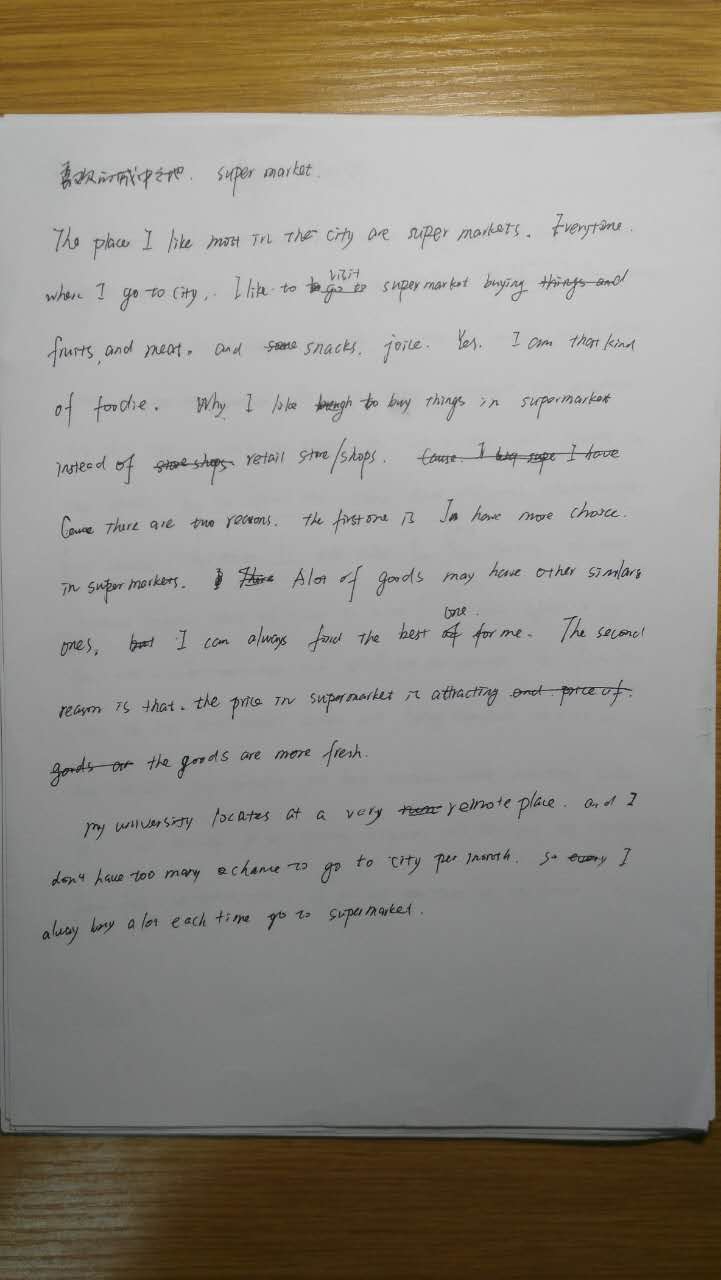 喜欢的城中之地. super market.
The place I like most in the city are super markets. Everytime.
when I go to city, I like to visit supermarket buying things and
fruits, and meat. and some snacks, joice. Yes. I am that kind
of foodie. Why I like to buy things in supermarket
instead of store shops retail store/shops. Cause. I I have
Cause there are two reasons. the first one is I have more choice.
in super markets. There A lot of goods may have other similars
ones, but I can always find the best one for me. The second
reason is that. the price in supermarket is attracting and price of.
goods or the goods are more fresh.
my university locates at a very remote place. and I
don't have too many chance to go to city per month. so every I
alway buy a lot each time go to supermarket.